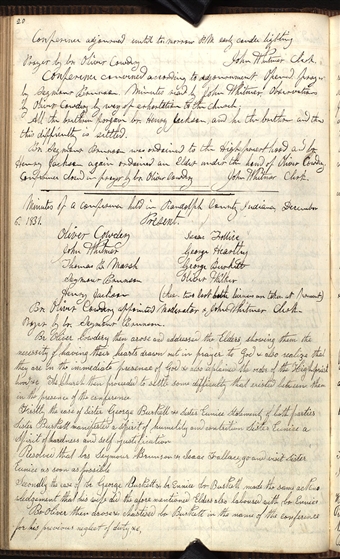 20
Conference adjourned until tomorrow P.M. early candle lighting
Prayer by br. Oliver Cowdery John Whitmer Clerk.
Conference convened according to adjournment. Opened prayer
by Seymour Brunson. Minutes read by John Whitmer, Observations
by Oliver Cowdery by way of exhortation to the church.
All the brethren forgave br. Henry Jackson, and he the brethren and thus
this difficulty is settled.
Br. Seymour Brunson was ordained to the High priesthood and br.
Henry Jackson again ordained an Elder under the hand of Oliver Cowdery.
Conference closed in prayer by br. Oliver Cowdery John Whitmer Clerk.
Minutes of a conference held in Randolph County, Indiana, December
6. 1831. Present.
Oliver Cowdery Isaac
John Whitmer George
Thomas B. Marsh George Burkett
Seymour Brunson Oliver
Henry Jackson (These two last licenses were taken at present)
Br. Oliver Cowdery appointed Moderator & John Whitmer Clerk.
Prayer by br. Seymour Brunson.
Br. Oliver Cowdery then arose and addressed the Elders showing them the
necessity of having their hearts drawn out in prayer to God & also realize that
they are in the immediate presence of God & also explained the order of the High priest
hood &c. The Church then proceeded to settle some difficulty that existed between them
in the presence of the conference
Firstly the case of Sister George Burkett & Sister Eunice of both parties
Sister Burkett manifested a spirit of humility and contrition Sister Eunice a
spirit of hardness and self justification
Resolved that brs Seymour Brunson & Isaac go and visit Sister
Eunice as soon as possible
Secondly the case of br. George Burkett & br. Eunice br. Burkett made the same ackno
wledgement that his wife did the afore mentioned Elders also laboured with br. Eunice.
Br. Oliver then arose & chastised br Burkett in the name of the conference
for his previous neglect of duty &c,